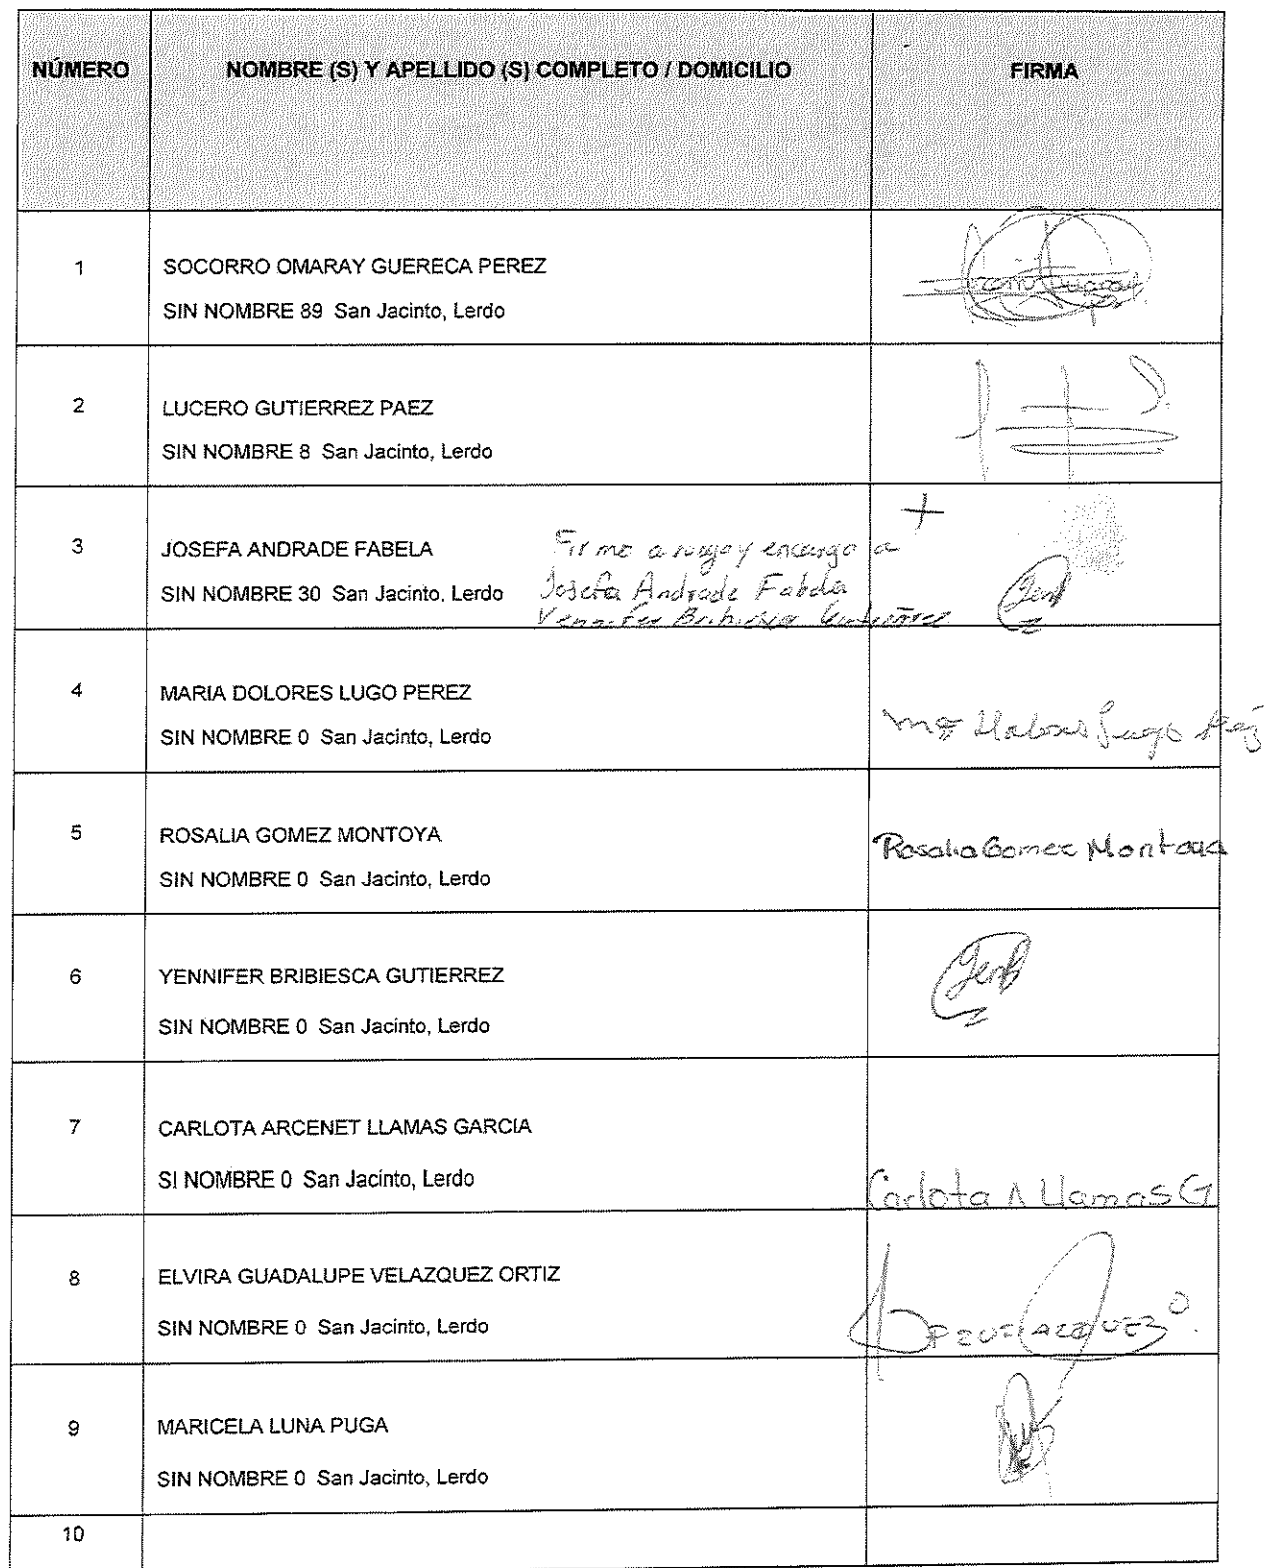 NÚMERO NOMBRE (S) Y APELLIDO (S) COMPLETO / DOMICILIO FIRMA
1 SOCORRO OMARAY GUERECA PEREZ
SIN NOMBRE 89 San Jacinto, Lerdo
2 LUCERO GUTIERREZ PAEZ
SIN NOMBRE 8 San Jacinto, Lerdo
3 JOSEFA ANDRADE FABELA Firmo a ruego y encargo a
SIN NOMBRE 30 San Jacinto, Lerdo Josefa Andrade Fabela
Yennifer Bribiesca Gutiérrez
4 MARIA DOLORES LUGO PEREZ
SIN NOMBRE 0 San Jacinto, Lerdo Ma Dolores Lugo
5 ROSALIA GOMEZ MONTOYA Rosalia Gomez Montoya
SIN NOMBRE 0 San Jacinto, Lerdo
6 YENNIFER BRIBIESCA GUTIERREZ
SIN NOMBRE 0 San Jacinto, Lerdo
7 CARLOTA ARCENET LLAMAS GARCIA
SI NOMBRE 0 San Jacinto, Lerdo Carlota A Llamas G
8 ELVIRA GUADALUPE VELAZQUEZ ORTIZ
SIN NOMBRE 0 San Jacinto, Lerdo
9 MARICELA LUNA PUGA
SIN NOMBRE 0 San Jacinto, Lerdo
10